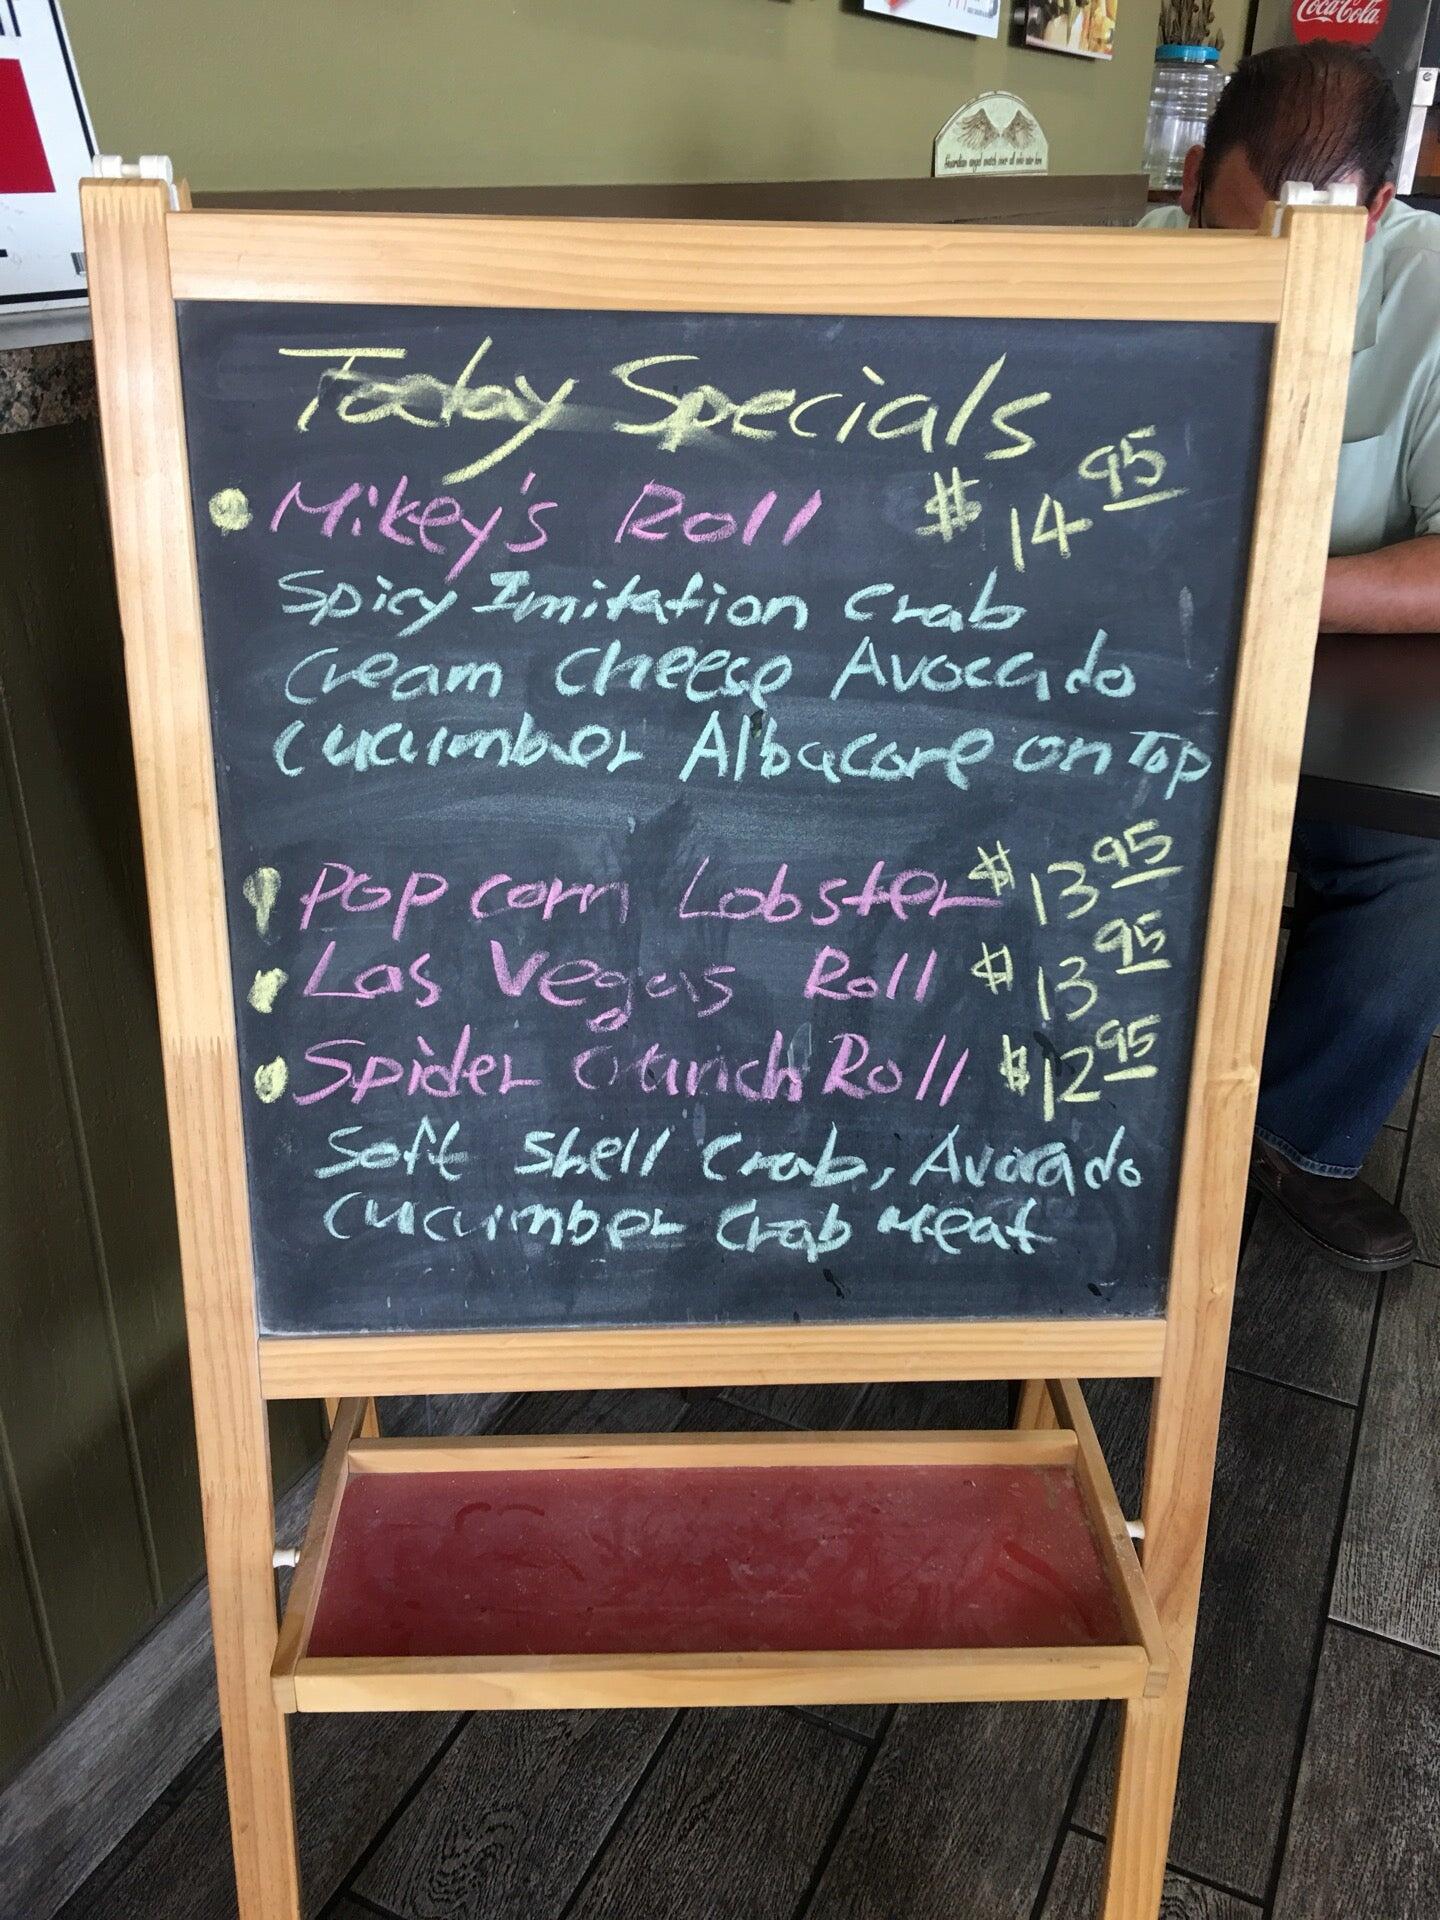 Coca-Cola
Guardian angel watch over all who enter here
Today Specials
Mikey's Roll $ 14 95
Spicy Imitation Crab
Cream Cheese Avocado
Cucumber Albacore on Top
Pop corn Lobster $ 13 95
Las Vegas Roll $ 13 95
Spider Crunch Roll $ 12 95
Soft Shell Crab, Avocado
Cucumber Crab Meat